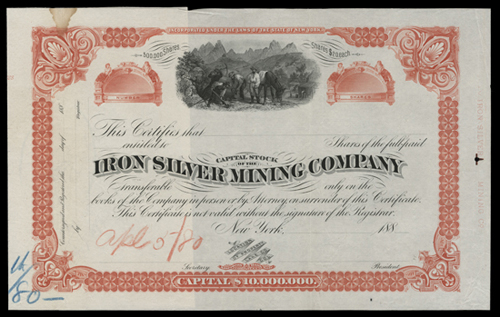 500,000 Shares
Shares $20 each
This Certifies that
entitled to Shares of the full paid
CAPITAL STOCK
OF THE
IRON SILVER MINING COMPANY
transferable only on the
books of the Company in person or by Attorney on surrender of this Certificate.
This Certificate is not valid without the signature of the Registrar.
New York, 188
Apl 5/80
Secretary President
CAPITAL $10,000,000.
80-